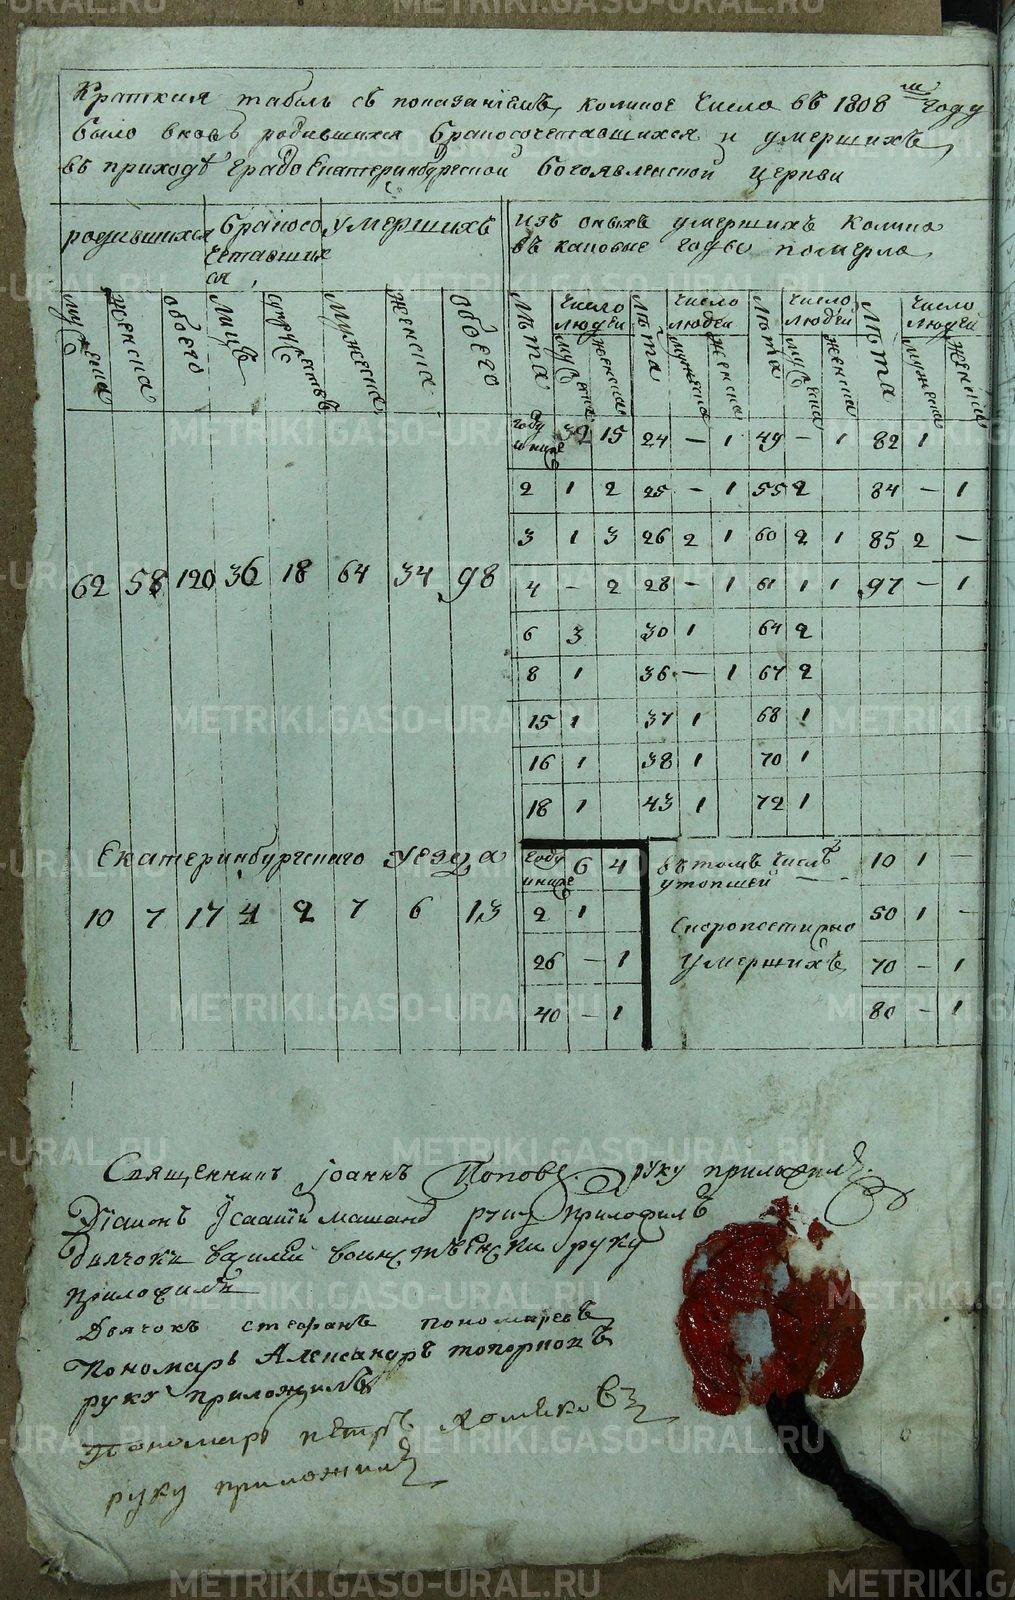 Краткия табель съ показаніемъ, коликое число въ 1808 мъ году
было вновь родившихся бракосочетавшихся и умершихъ
въ приходѣ Градо Екатеринбургской Богоявленской церкви
родившихся бракосо умершихъ Изъ оныхъ умерших колико
четавших въ каковые годы померло
ся
мужеска женска обоего лицъ супружествъ мужеска женска обоего Лѣта число людей мужеска женска Лѣта число людей мужеска женска Лѣта число людей мужеска женска Лѣта число людей мужеска женска
году и ниже 32 15 24 — 1 49 — 1 82 1
2 1 2 25 — 1 55 2 84 — 1
3 1 3 26 2 1 60 2 1 85 2 —
62 58 120 36 18 64 34 98 4 - 2 28 — 1 61 1 1 97 — 1
6 3 30 1 64 2
8 1 36 — 1 67 2
15 1 37 1 68 1
16 1 38 1 70 1
18 1 43 1 72 1
Екатеринбургскаго уезда году и ниже 6 4 въ томъ числѣ утопшей — 10 1 —
10 7 17 4 2 7 6 13 2 1 Скоропостижно 50 1 —
26 — 1 умершихъ 70 — 1
40 — 1 80 — 1
Священникъ Іоаннъ Поповъ руку приложилъ
Діаконъ руку приложилъ
дьячокъ василей руку
приложилъ
Дьячокъ стефанъ пономаревъ
Пономарь Александръ топорковъ
руку приложилъ
пономарь петръ хомяковъ
руку приложилъ
METRIKI.GASO-URAL.RU